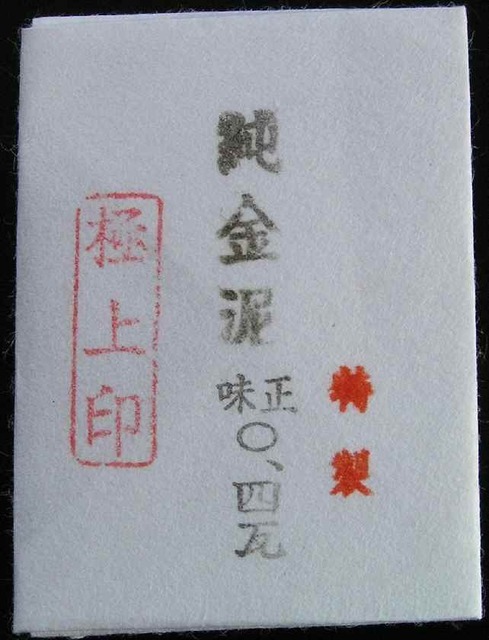 特製
純金泥
正味
〇、四瓦
極上印